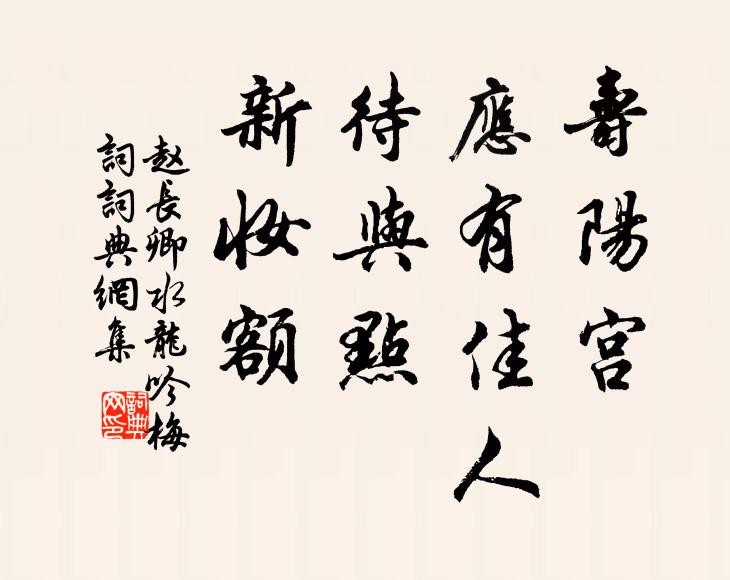 壽陽宫
應有佳人
待與點
新妝額
赵長卿水龍吟梅
詞詞典網集
詞典网印